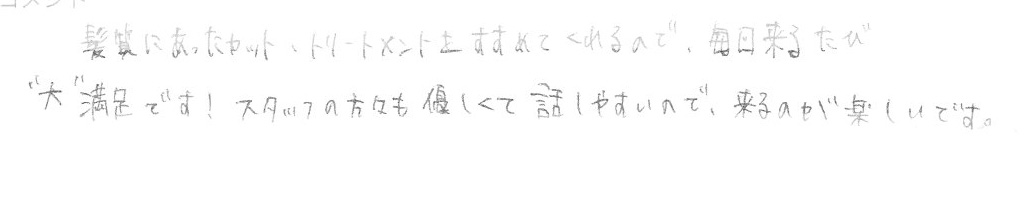 コメント
髪質にあったカット、トリートメントをすすめてくれるので、毎回来るたび
"大"満足です！スタッフの方々も優しくて話しやすいので、来るのが楽しいです。